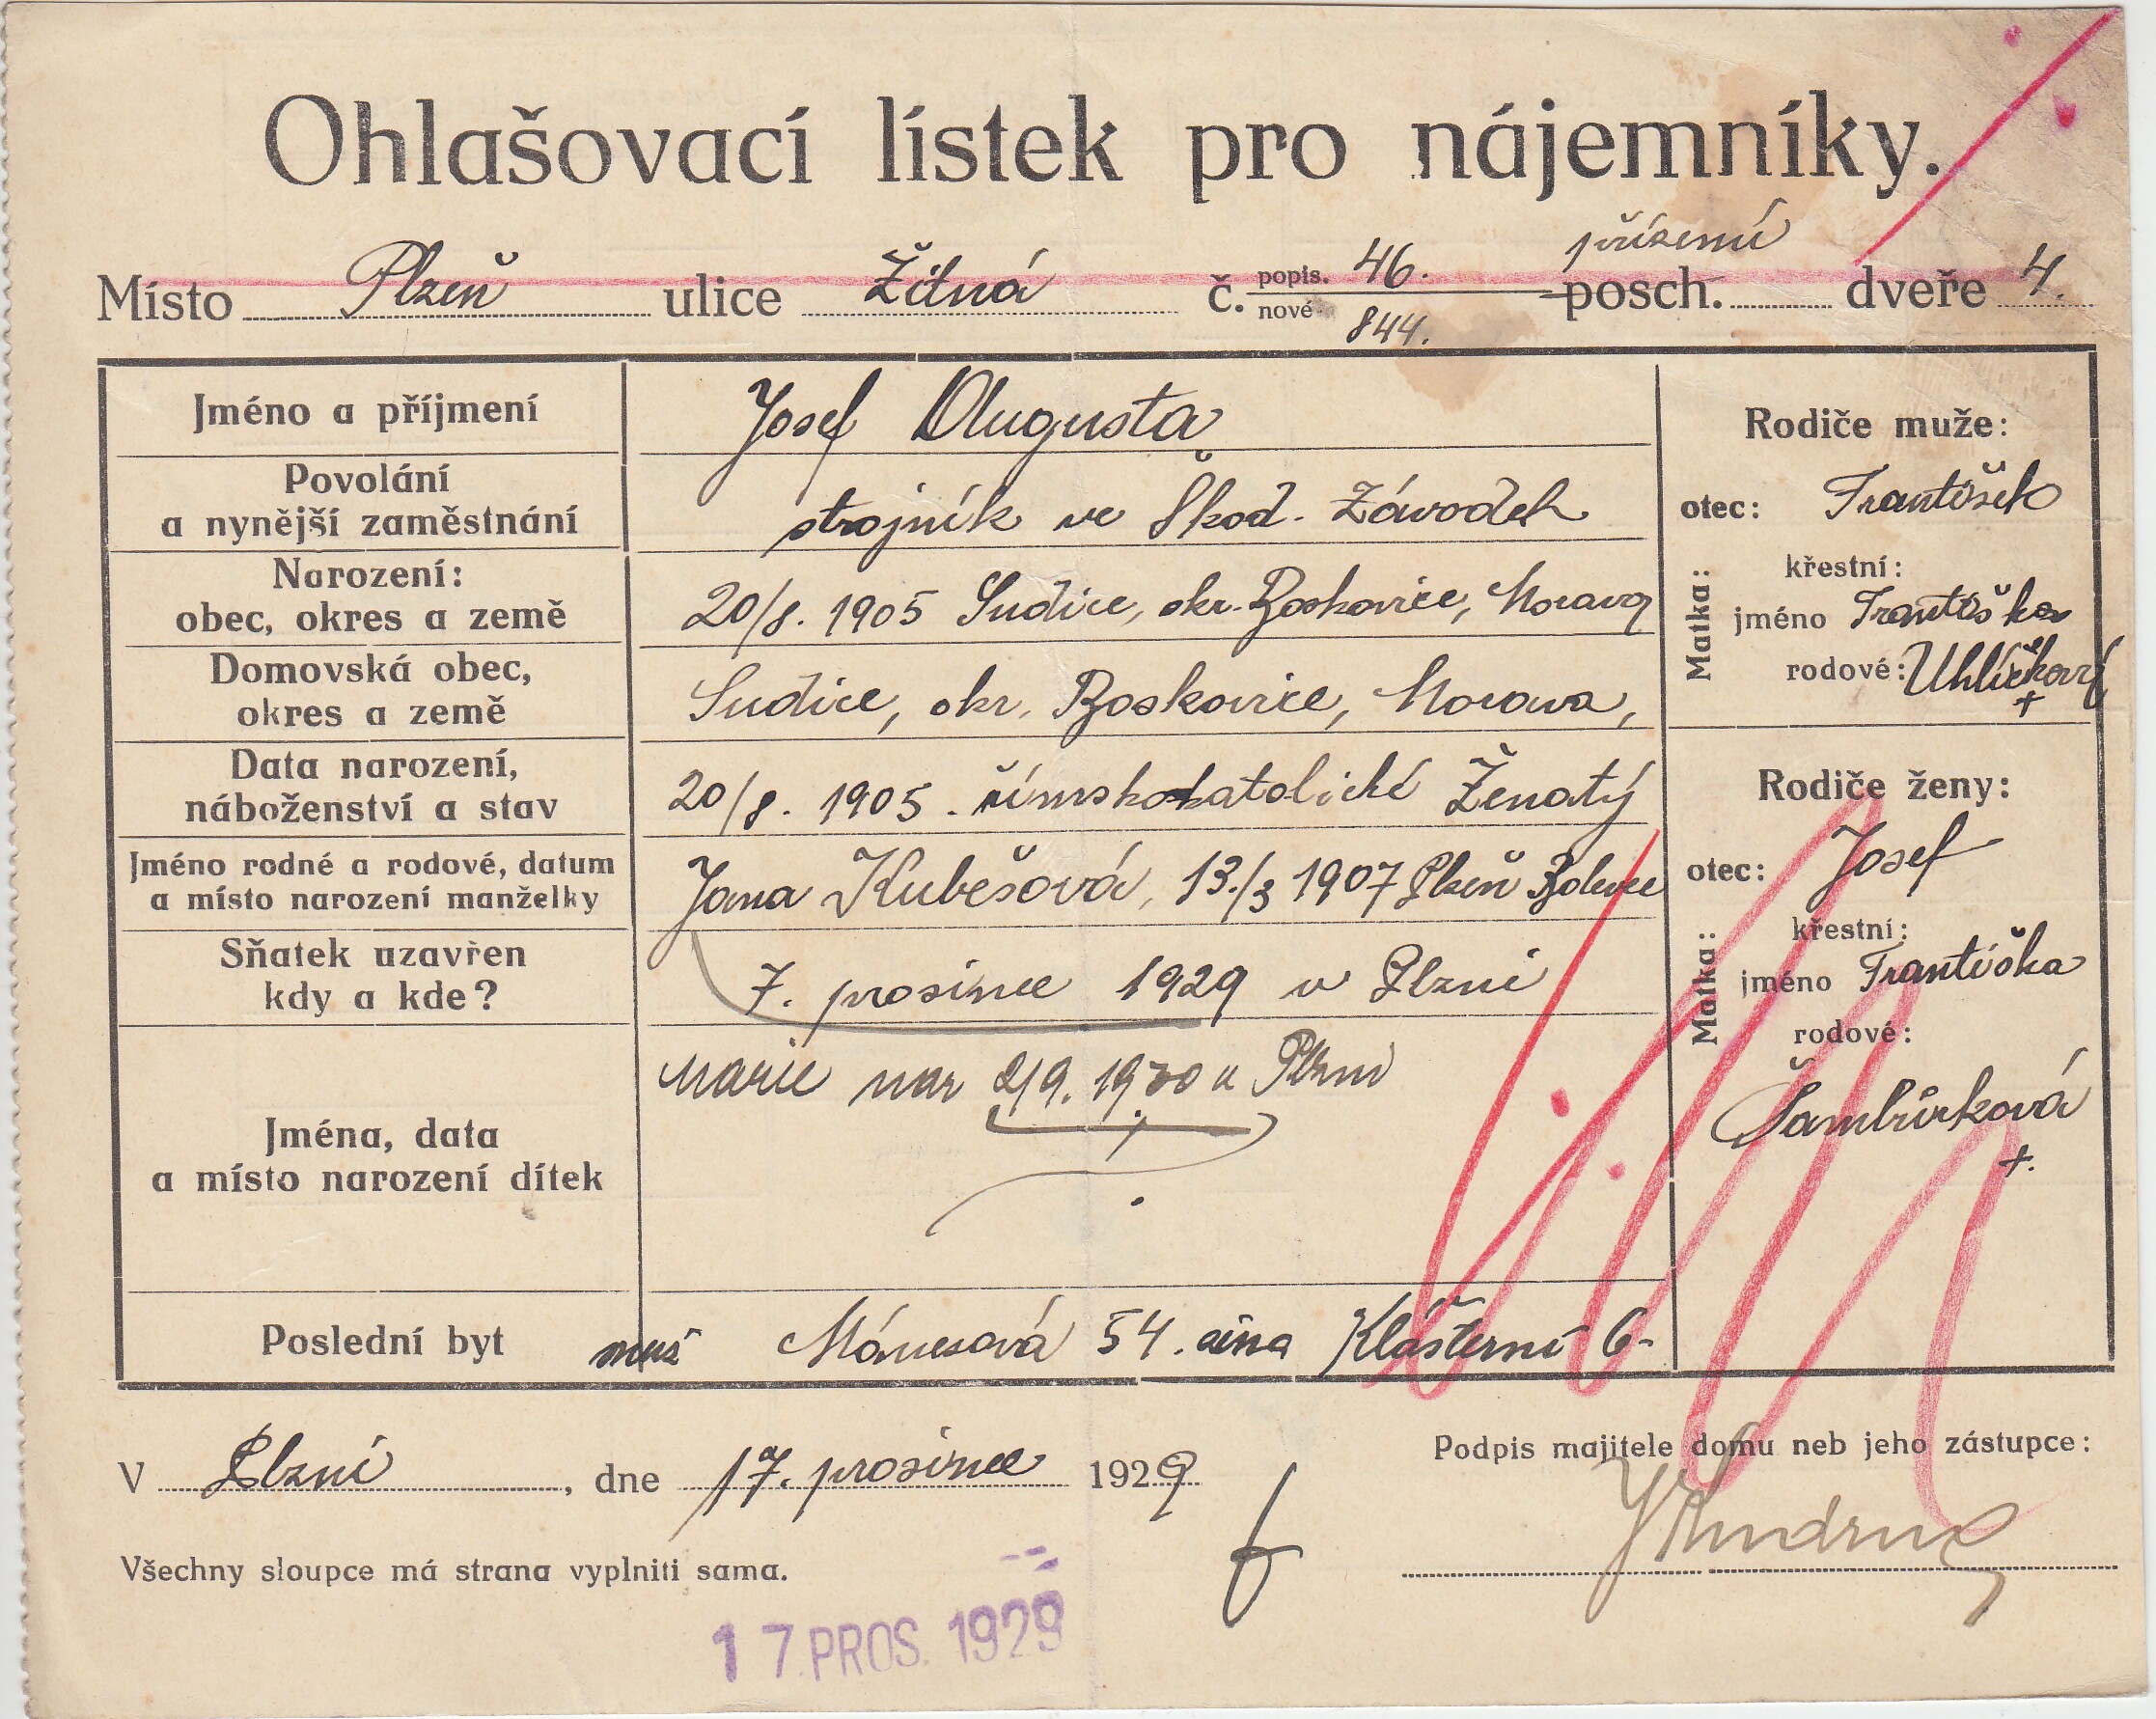 Ohlašovací lístek pro nájemníky.
Místo Plzeň ulice Žitná č. popis. 46. nové 844. přízemí posch. dveře 4.
Jméno a příjmení Josef Augusta
Povolání
a nynější zaměstnání strojník ve Škod. Závodech
Narození:
obec, okres a země 20/8. 1905 Sudice, okr. Boskovice, Morava
Domovská obec,
okres a země Sudice, okr. Boskovice, Morava,
Data narození,
náboženství a stav 20/8. 1905. římskokatolické Ženatý
Jméno rodné a rodové, datum
a místo narození manželky Jana Kubešová, 13./3 1907 Plzeň Bolevec
Sňatek uzavřen
kdy a kde? 7. prosince 1929 v Plzni
Jména, data
a místo narození dítek Marie nar 2/9. 1930 v Plzni
Poslední byt muž Mánesová 54. žena Klášterní 6-
Rodiče muže:
otec: František
Matka: křestní:
jméno Františka
rodové: Uhlířková
+
Rodiče ženy:
otec: Josef
Matka: křestní:
jméno Františka
rodové:
Šambůrková
+.
V Plzni, dne 17. prosince 1929
Podpis majitele domu neb jeho zástupce:
Všechny sloupce má strana vyplniti sama.
17. PROS. 1929